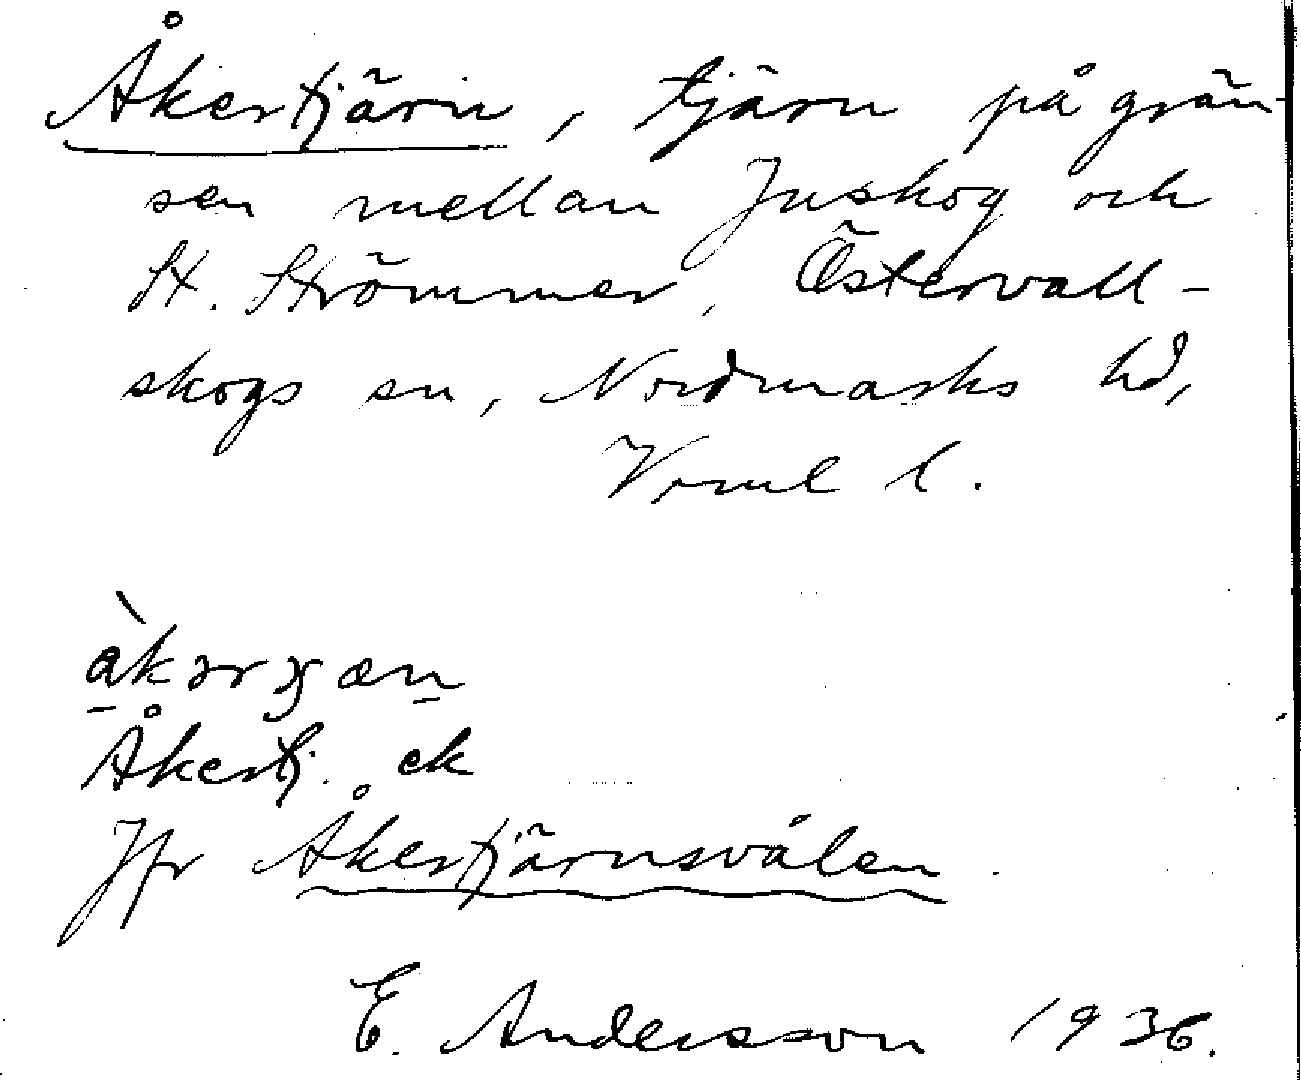 Åkertjärn, tjärn på grän-
sen mellan Juskog och
St. Strömmer, Östervall-
skogs sn, Nordmarks hd,
Vrml l.
Åkertj. ek
Jfr Åkertjärnsvålen
E. Andersson 1936.